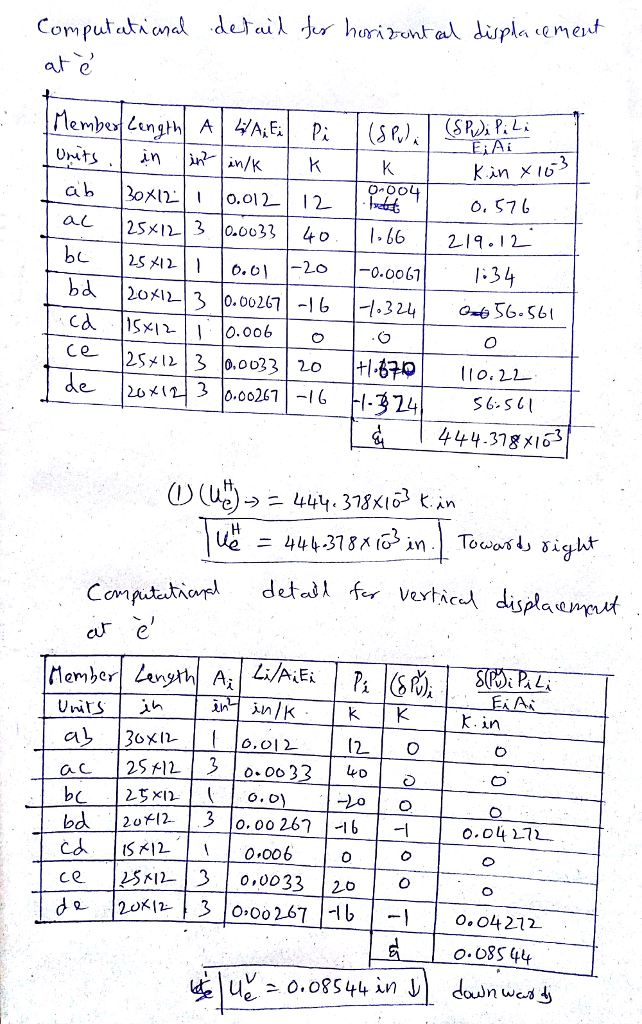 Computational detail for horizontal displacement
at 'e'
Member Length A Li/AiEi Pi (δPv)i (δPv)i Pi Li / Ei Ai
Units in in² in/K K K K.in x 10⁻³
ab 30x12 1 0.012 12 0.004 0.576
ac 25x12 3 0.0033 40 1.66 219.12
bc 25x12 1 0.01 -20 -0.0067 1.34
bd 20x12 3 0.00267 -16 -1.324 56.561
cd 15x12 1 0.006 0 0 0
ce 25x12 3 0.0033 20 +1.670 110.22
de 20x12 3 0.00267 -16 -1.324 56.561
444.378x10⁻³
(1)(Ueᴴ)→ = 444.378x10⁻³ k.in
Ueᴴ = 444.378x10⁻³ in. Towards right
Computational detail for vertical displacement
at 'e'
Member Length Ai Li/AiEi Pi (δPᵛv)i δ(Pᵛv)i Pi Li / Ei Ai
Units in in² in/K K K K.in
ab 30x12 1 0.012 12 0 0
ac 25x12 3 0.0033 40 0 0
bc 25x12 1 0.01 -20 0 0
bd 20x12 3 0.00267 -16 -1 0.04272
cd 15x12 1 0.006 0 0 0
ce 25x12 3 0.0033 20 0 0
de 20x12 3 0.00267 -16 -1 0.04272
0.08544
Ueᵛ = 0.08544 in ↓ downwards